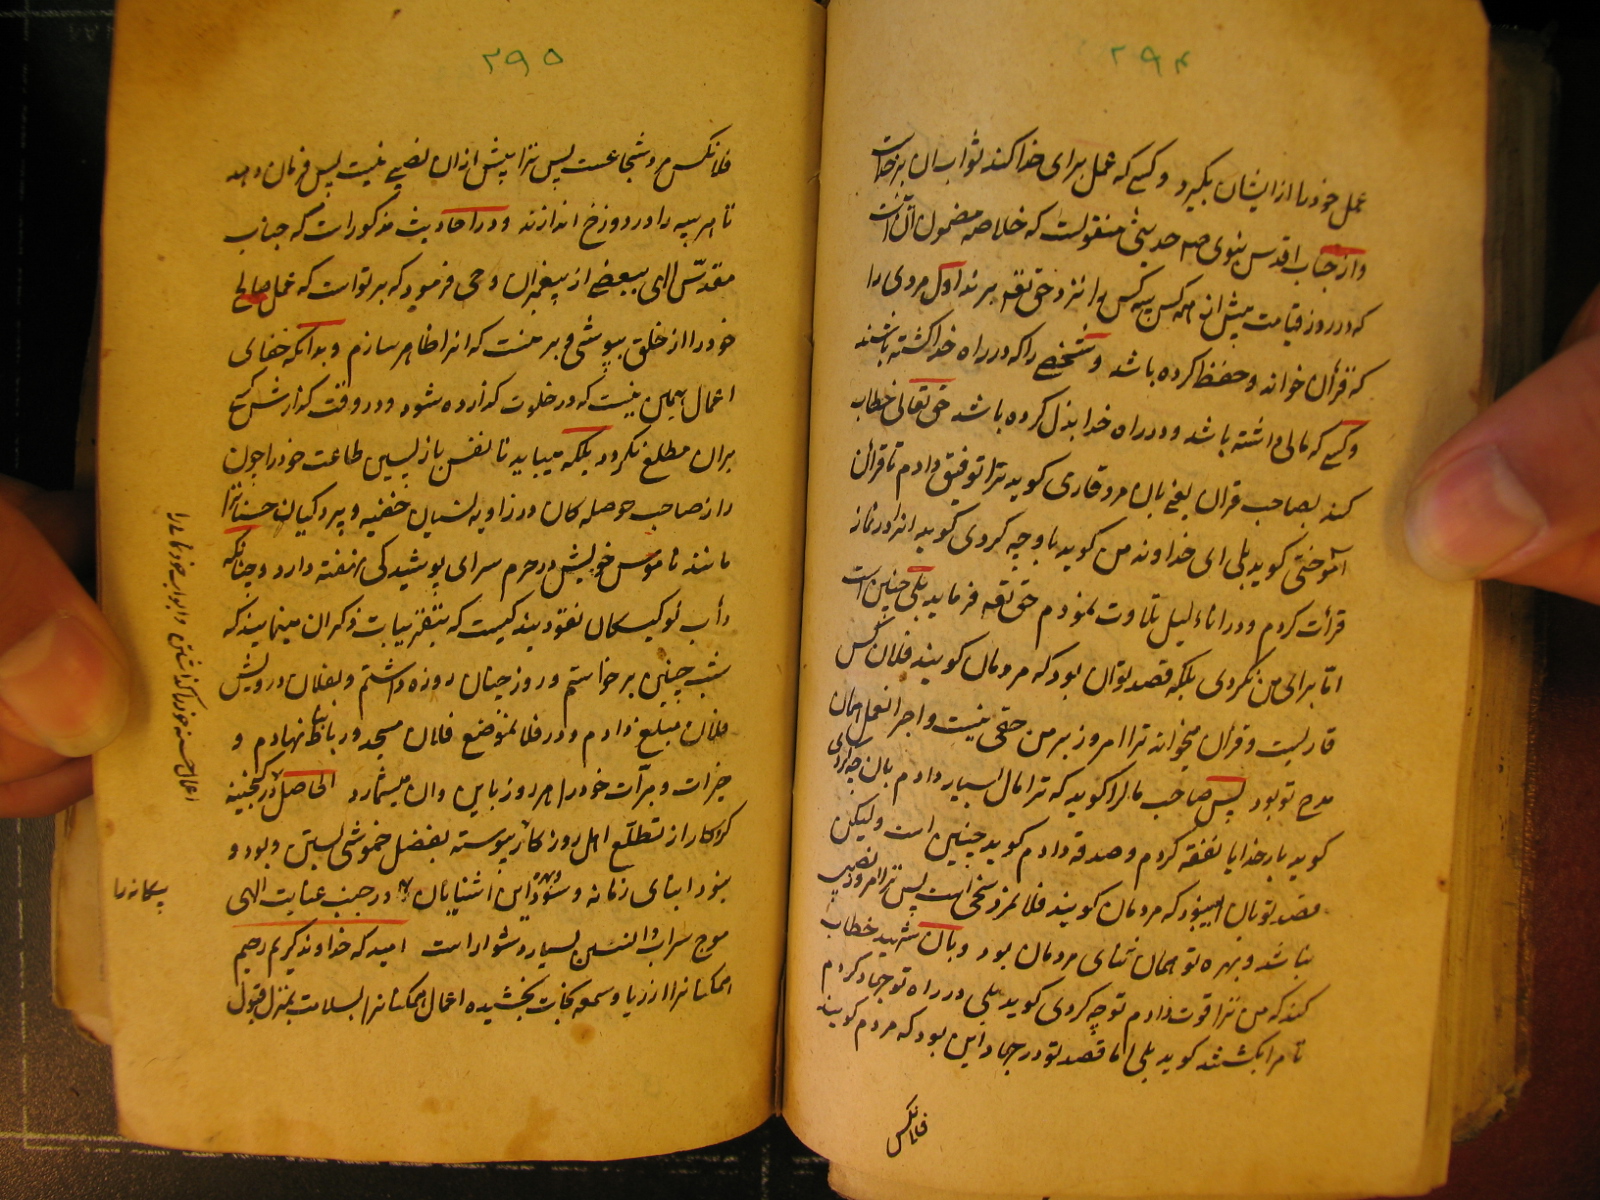 ۲۹۴
عمل خود را از ایشان بگیرد و کسی که عمل برای خدا کند ثواب آن بر خداست
و از جناب اقدس نبوی صم حدیثی منقولست که خلاصه مضمون آن آنست
که در روز قیامت پیش از همه کس سه کس را نزد حق تعه برند اول مردی را
که قرآن خوانده و حفظ کرده باشد و شخصی را که در راه خدا کشته باشند
و کسی که مالی داشته باشد و در راه خدا بذل کرده باشد حق تعالی خطاب
کند بصاحب قرآن یعنی بان مرد قاری گوید ترا توفیق دادم تا قرآن
آموختی گوید بلی ای خداوند من گوید با او چه کردی گوید انرا در نماز
قرأت کردم و در اناء لیل تلاوت نمودم حق تعه فرماید بلی چنین است
امّا برای من نکردی بلکه قصد تو آن بود که مردمان گویند فلان کس
قاریست و قرآن میخواند ترا امروز بر من حقی نیست و اجر آنعمل همان
مدح تو بود پس صاحب مال را گوید که ترا مال بسیار دادم بان چه کردی
گوید بار خدایا نفقه کردم و صدقه دادم گوید چنین است ولیکن
قصد تو بان این بود که مردمان گویند فلانمرد سخی است پس ترا امروز نصیبی
نباشد و بهره تو همان ثنای مردمان بود و بان شهید خطاب
کند که من ترا قوت دادم تو چه کردی گوید بلی در راه تو جهاد کردم
تا مرا بکشتند گوید بلی امّا قصد تو در جهاد این بود که مردم گویند
فلانکس
۲۹۵
فلانکس مرد شجاعست پس ترا پیش از ان نصیبی نیست پس فرمان دهد
تا هر سه را در دوزخ اندازند و در احادیث مذکور است که جناب
مقدّس الهی ببعضی از پیغمبران وحی فرمود که بر تو است که عمل صالح
خود را از خلق بپوشی و بر منست که انرا ظاهر سازم و بدانکه خفای
اعمال همین نیست که در خلوت گذارده شود و در وقت گذارش کسی
بران مطلع نگردد بلکه میباید تا نفس بازپسین طاعت خود را چون
راز صاحب حوصله کان در زاویه نسیان خفیه و پردگیان حسنات را
مانند ناموس خویش در حرم سرای پوشیدگی نهفته دارد و چنانکه
دأب نوکیسکان نقود بندگیست که بتقریبات ذکر ان مینمایند که
شب چنین برخواستم و روز چنان روزه داشتم و بفلان درویش
فلان مبلغ دادم و در فلانموضع فلان مسجد و رباط بنا نهادم و
خیرات و مبرّات خود را هر روز باین و ان میشمارد الحاصل در گنجینه
کردکار از تطلّع اهل روزکار پیوسته بقفل خموشی بستن و بود و
نبود ابنای زمانه و شنود این آشنایان را در جنب عنایت الهی
موج سراب دانستن بسیار دشوار است امید که خداوند کریم رحیم
همکنانرا از ریا و سمعه نجات بخشیده اعمال همکنانرا بسلامت بمنزل قبول
اعمال حسنه خود را گذاشتن و ابواب خود نما را
بیکانه را